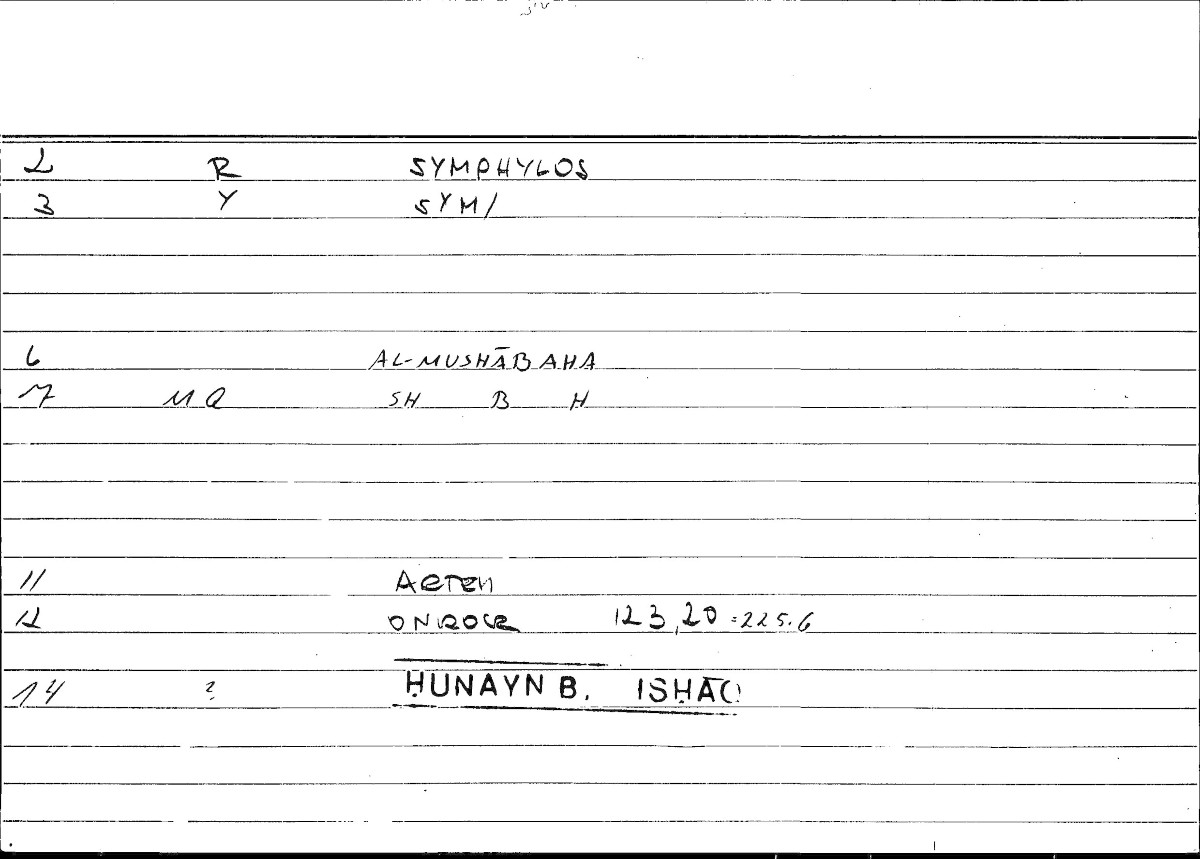 2 R SYMPHYLOS
3 Y SYM/
6 AL-MUSHĀBAHA
7 MQ SH B H
11 ARTEM
12 ONIROCR 123,20 = 225.6
14 ? ḤUNAYN B. ISḤĀQ